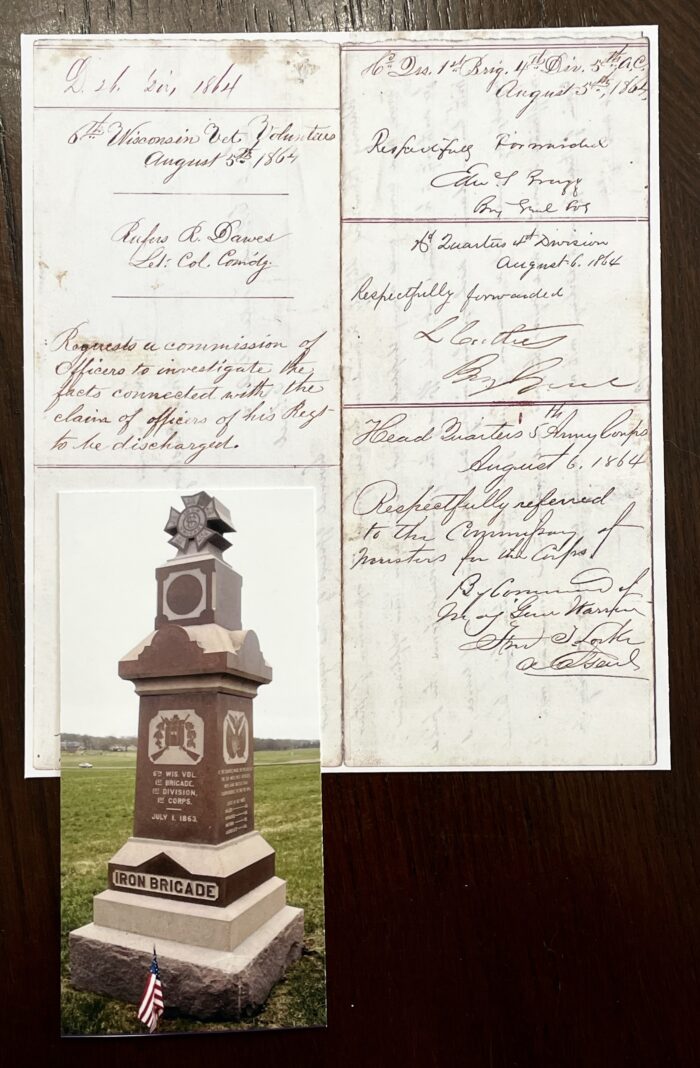 1864
6th Wisconsin Vet Volunteers
August 5th 1864
Rufus R. Dawes
Lt: Col. Comdg.
Requests a commission of
Officers to investigate the
facts connected with the
claim of officers of his Regt
to be discharged.
Hd Qrs. 1st Brig. 4th Div. 5th A.C.
August 5th, 1864,
Respectfully Forwarded
Edw. S Bragg
Brig Genl Vols
Hd Quarters 4th Division
August 6. 1864
Respectfully forwarded
L Cutler
Brig Genl
Head Quarters 5th Army Corps
August 6, 1864
Respectfully referred
to the Commissary of
Musters for the Corps
By Command of
Maj Genl Warren
Fred T Locke
A A Genl
6TH WIS. VOL.
1ST BRIGADE,
1ST DIVISION,
1ST CORPS.
JULY 1, 1863.
IRON BRIGADE